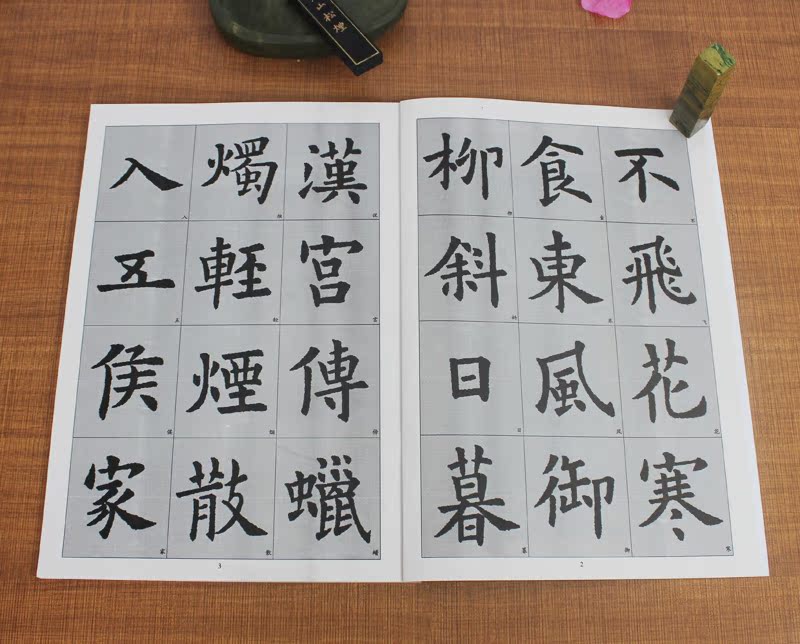 山松煙
不飛花寒
食東風御
柳斜日暮
2
漢宮傳蠟
燭輕煙散
入五侯家
3